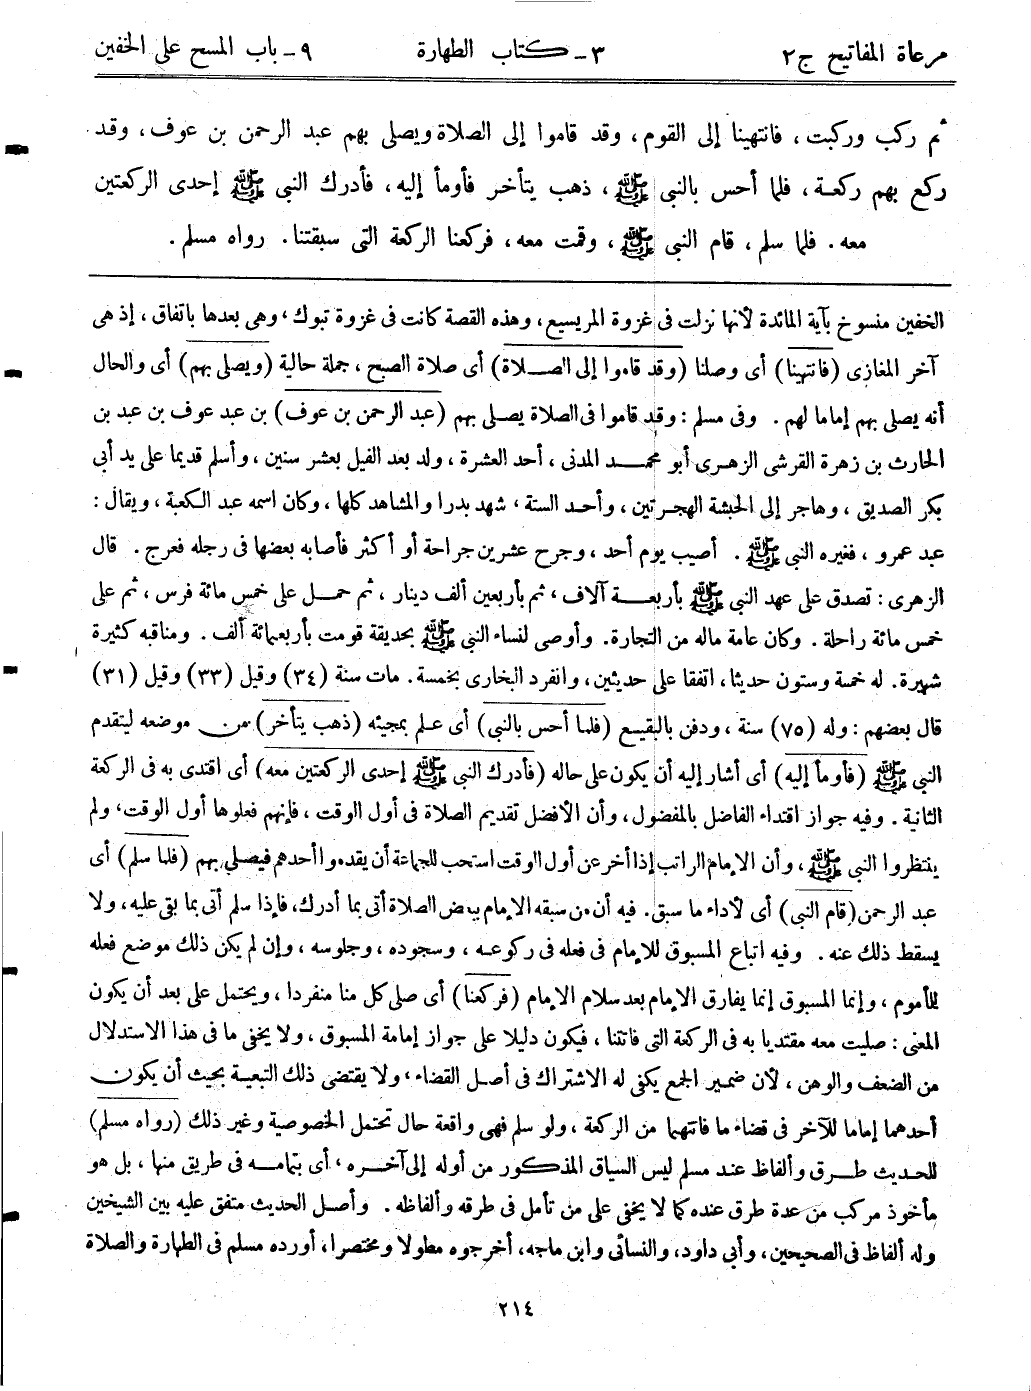 مرعاة المفاتيح ج٢ ٣- كتاب الطهارة ٩- باب المسح على الخفين
ثم ركب وركبت ، فانتهينا إلى القوم ، وقد قاموا إلى الصلاة ويصلى بهم عبد الرحمن بن عوف ، وقد
ركع بهم ركعـة ، فلما أحس بالنبى ﷺ ، ذهب يتأخر فأومأ إليه ، فأدرك النبى ﷺ إحدى الركعتين
معه . فلما سلم ، قام النبى ﷺ ، وقمت معه ، فركعنا الركعة التى سبقتنا . رواه مسلم .
الخفين منسوخ بآية المائدة لأنها نزلت فى غزوة المريسيع ، وهذه القصة كانت فى غزوة تبوك ، وهى بعدها باتفاق ، إذ هى
آخر المغازى (فانتهينا) أى وصلنا (وقد قاموا إلى الصـلاة) أى صلاة الصبح ، جملة حالية (ويصلى بهم) أى والحال
أنه يصلى بهم إماما لهم . وفى مسلم : وقد قاموا فى الصلاة يصلى بهم (عبد الرحمن بن عوف) بن عبد عوف بن عبد بن
الحارث بن زهرة القرشى الزهرى أبو محمـد المدنى ، أحد العشرة ، ولد بعد الفيل بعشر سنين ، وأسلم قديما على يد أبي
بكر الصديق ، وهاجر إلى الحبشة الهجرتين ، وأحـد الستة ، شهد بدرا والمشاهد كلها ، وكان اسمه عبد الكعبة ، ويقال :
عبد عمرو ، فغيره النبى ﷺ . أصيب يوم أحد ، وجرح عشرين جراحة أو أكثر فأصابه بعضها فى رجله فعرج . قال
الزهرى : تصدق على عهد النبى ﷺ بأربعـة آلاف ، ثم بأربعين ألف دينار ، ثم حمـل على خمس مائة فرس ، ثم على
خمس مائة راحلة . وكان عامة ماله من التجارة . وأوصى لنساء النبى ﷺ بحديقة قومت بأربعمائة ألف . ومناقبه كثيرة
شهيرة . له خمسة وستون حديثا ، اتفقا على حديثين ، وانفرد البخارى بخمسة . مات سنة (٣٤) وقيل (٣٣) وقيل (٣١)
قال بعضهم : وله (٧٥) سنة ، ودفن بالبقيـع (فلما أحس بالنبي) أى علم بمجيئه (ذهب يتأخر) من موضعه ليتقدم
النبي ﷺ (فأومأ إليه) أى أشار إليه أن يكون على حاله (فأدرك النبى ﷺ إحدى الركعتين معه) أى اقتدى به فى الركعة
الثانية . وفيه جواز اقتداء الفاضل بالمفضول ، وأن الأفضل تقديم الصلاة فى أول الوقت ، فإنهم فعلوها أول الوقت ، ولم
ينتظروا النبى ﷺ ، وأن الإمام الراتب إذا أخر عن أول الوقت استحب للجماعة أن يقدموا أحدهم فيصلى بهم (فلما سلم) أى
عبد الرحمن (قام النبى) أى لأداء ما سبق . فيه أن من سبقه الإمام ببعض الصلاة أتى بما أدرك ، فإذا سلم أتى بما بقى عليه ، ولا
يسقط ذلك عنه . وفيه اتباع المسبوق للإمام فى فعله فى ركوعـه ، وسجوده ، وجلوسه ، وإن لم يكن ذلك موضع فعله
للمأموم ، وإنما المسبوق إنما يفارق الإمام بعد سلام الإمام (فركعنا) أى صلى كل منا منفردا ، ويحتمل على بعد أن يكون
المعنى : صليت معه مقتديا به فى الركعة التى فاتتنا ، فيكون دليلا على جواز إمامة المسبوق ، ولا يخفى ما فى هذا الاستدلال
من الضعف والوهن ، لأن ضمير الجمع يكفى له الاشتراك فى أصل القضاء ، ولا يقتضى ذلك التبعية بحيث أن يكون
أحدهما إماما للآخر فى قضاء ما فاتتهما من الركعة ، ولو سلم فهى واقعة حال تحتمل الخصوصية وغير ذلك (رواه مسلم)
للحديث طـرق وألفاظ عند مسلم ليس السياق المذكور من أوله إلى آخـره ، أى بتمامـه فى طريق منها ، بل هو
مأخوذ مركب من عدة طرق عنده كما لا يخفى على من تأمل فى طرقه وألفاظه . وأصل الحديث متفق عليه بين الشيخين
وله ألفاظ فى الصحيحين ، وأبي داود ، والنسائى وابن ماجه ، أخرجوه مطولا ومختصرا ، أورده مسلم فى الطهارة والصلاة
٢١٤